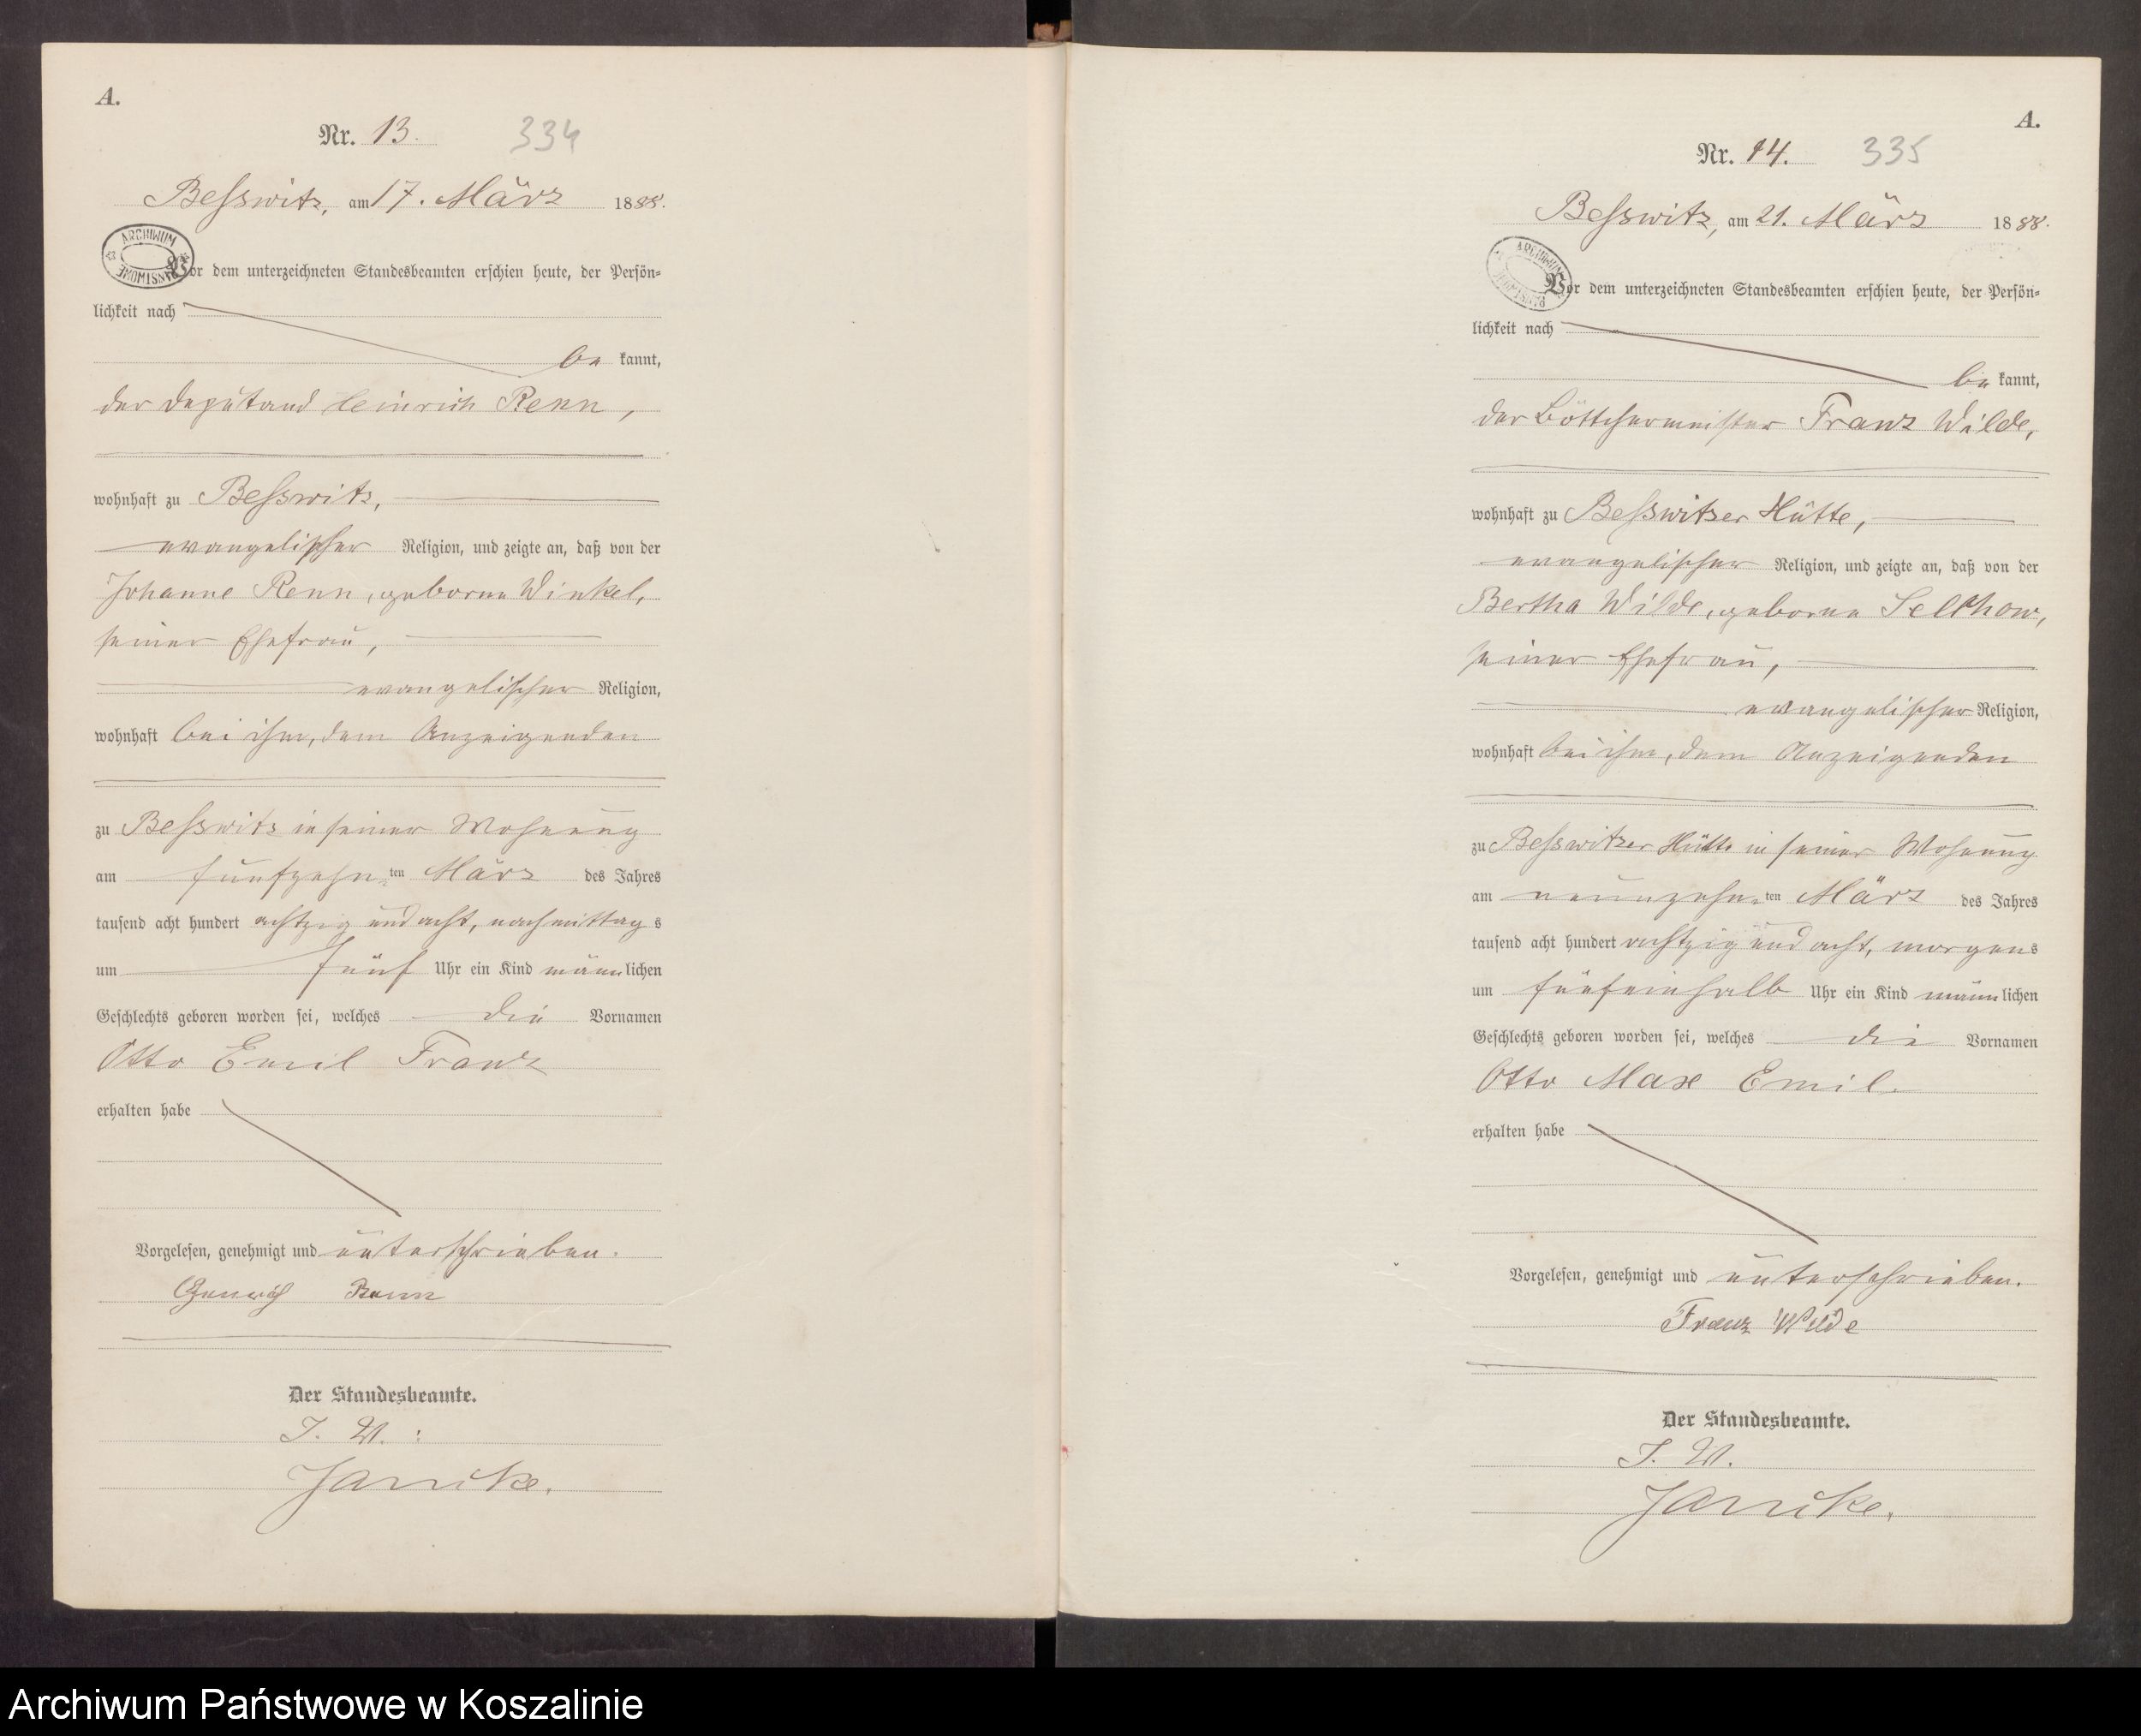 A.
Nr. 13. 334
Besswitz, am 17. März 1888.
ARCHIWUM
Vor dem unterzeichneten Standesbeamten erschien heute, der Persön=
lichkeit nach
be kannt,
der Deputand Heinrich Renn,
wohnhaft zu Besswitz,
evangelischer Religion, und zeigte an, daß von der
Johanne Renn, geborne Winkel,
seiner Ehefrau,
evangelischer Religion,
wohnhaft bei ihm, dem Anzeigenden
zu Besswitz in seiner Wohnung
am fünfzehnten März des Jahres
tausend acht hundert achtzig und acht, nachmittags
um fünf Uhr ein Kind männlichen
Geschlechts geboren worden sei, welches die Vornamen
Otto Emil Franz
erhalten habe
Vorgelesen, genehmigt und unterschrieben.
Heinrich Renn
Der Standesbeamte.
I. V. :
Jancke.
A.
Nr. 14. 335
Besswitz, am 21. März 1888.
ARCHIWUM
Vor dem unterzeichneten Standesbeamten erschien heute, der Persön=
lichkeit nach
be kannt,
der Böttchermeister Franz Wilde,
wohnhaft zu Besswitzer Hütte,
evangelischer Religion, und zeigte an, daß von der
Bertha Wilde, geborne Selchow,
seiner Ehefrau,
evangelischer Religion,
wohnhaft bei ihm, dem Anzeigenden
zu Besswitzer Hütte in seiner Wohnung
am neunzehnten März des Jahres
tausend acht hundert achtzig und acht, morgens
um fünfeinhalb Uhr ein Kind männlichen
Geschlechts geboren worden sei, welches die Vornamen
Otto Max Emil.
erhalten habe
Vorgelesen, genehmigt und unterschrieben.
Franz Wilde
Der Standesbeamte.
I. V.
Jancke.
Archiwum Państwowe w Koszalinie